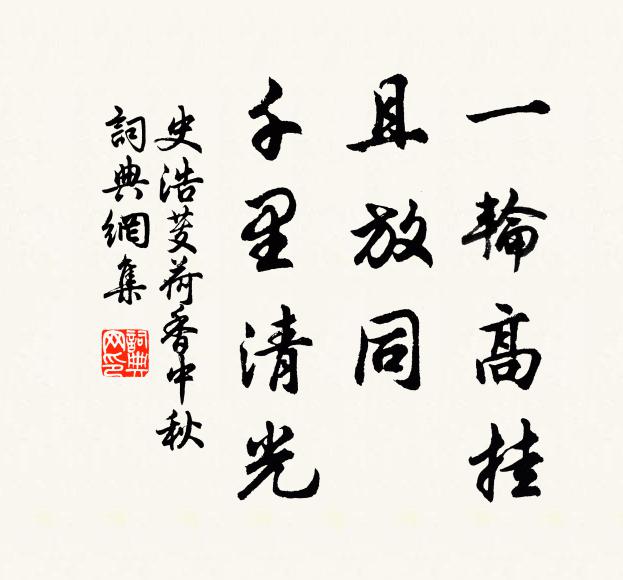 一輪高挂
且放同
千里清光
史浩芰荷香中秋
詞典網集
詞典网印